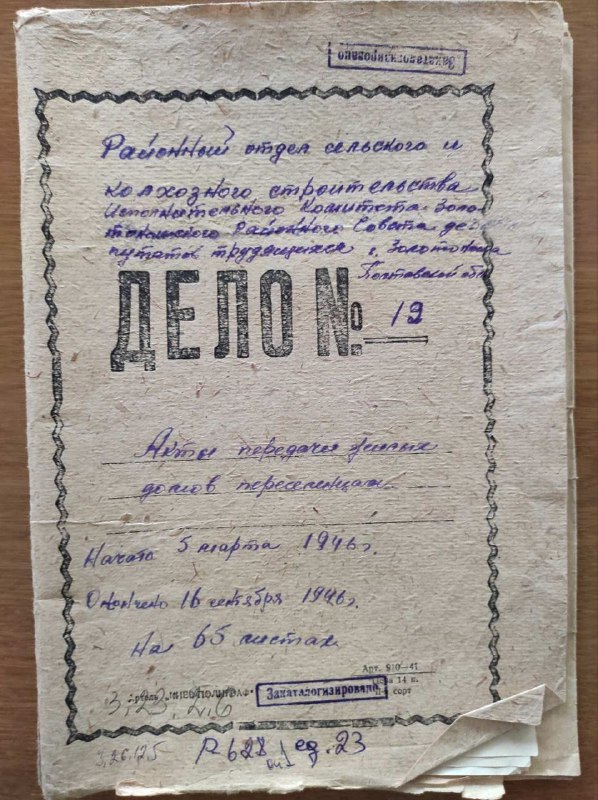 Закаталогизировано
Районный отдел сельского и
колхозного строительства
Исполнительного Комитета Золо-
тоношского Районного Совета де-
путатов трудящихся г. Золотоноша
Полтавской обл
ДЕЛО №: 19
Акты передачи жилых
домов переселенцам
Начато 5 марта 1946 г.
Окончено 16 сентября 1946 г.
На 65 листах
Арт. 910—41
Цена 14 к.
сорт
Закаталогизировано
3.26.125
Р 628 оп1 ед. 23